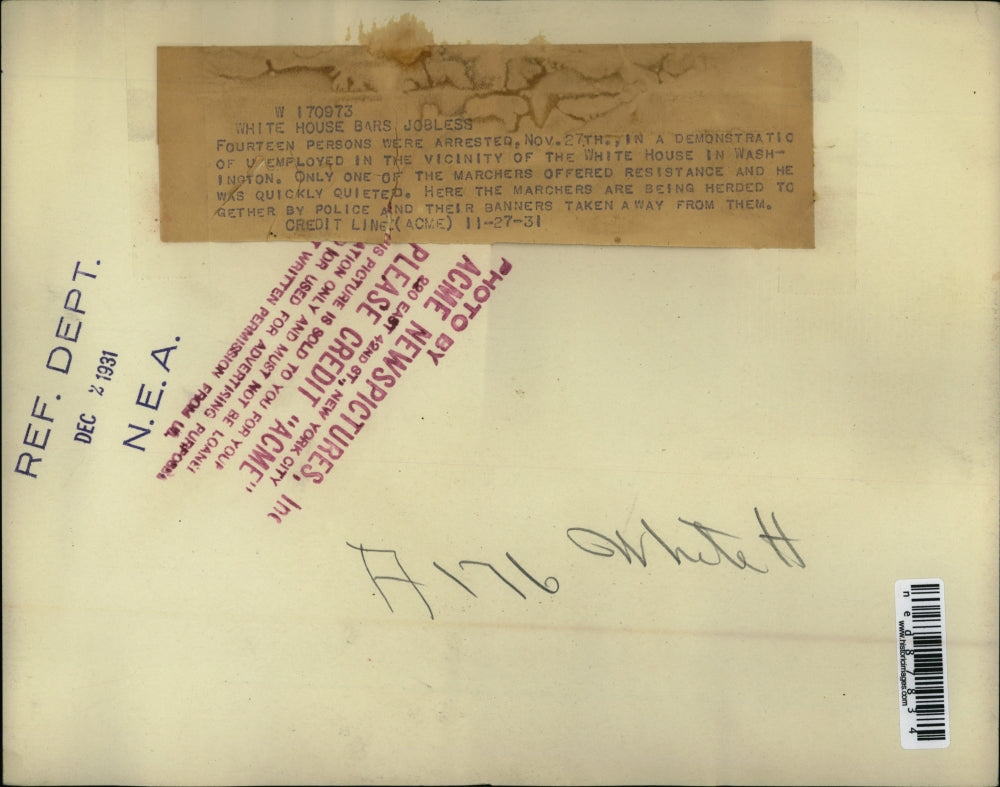 W 170973
WHITE HOUSE BARS JOBLESS
FOURTEEN PERSONS WERE ARRESTED, NOV. 27TH., IN A DEMONSTRATIO
OF U EMPLOYED IN THE VICINITY OF THE WHITE HOUSE IN WASH-
INGTON. ONLY ONE OF THE MARCHERS OFFERED RESISTANCE AND HE
WAS QUICKLY QUIETED. HERE THE MARCHERS ARE BEING HERDED TO
GETHER BY POLICE AND THEIR BANNERS TAKEN AWAY FROM THEM.
CREDIT LINE (ACME) 11-27-31
PHOTO BY
ACME NEWSPICTURES, Inc
220 EAST 42ND ST., NEW YORK CITY
PLEASE CREDIT "ACME"
HIS PICTURE IS SOLD TO YOU FOR YOUR
ATION ONLY AND MUST NOT BE LOANE
OR USED FOR ADVERTISING PURPOSE
T WRITTEN PERMISSION FROM US.
REF. DEPT.
DEC 2 1931
N. E. A.
A 176 White H
ned87834
www.historicimages.com